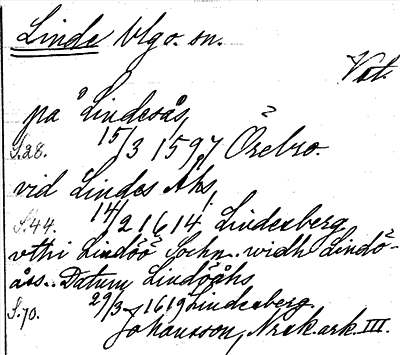 Linde Vlgo. sn.
Vät.
på Lindesås,
S.28. 15/3 1597 Örebro.
vid Lindes Ahs,
S.44. 14/2 1614 Lindesberg
vthi Lindöö Sochn.. widh Lindö-
åss.. Datum Lindöåhs
S.70. 29/3 1619 Lindesberg.
Johansson, Nrek. ark. III.